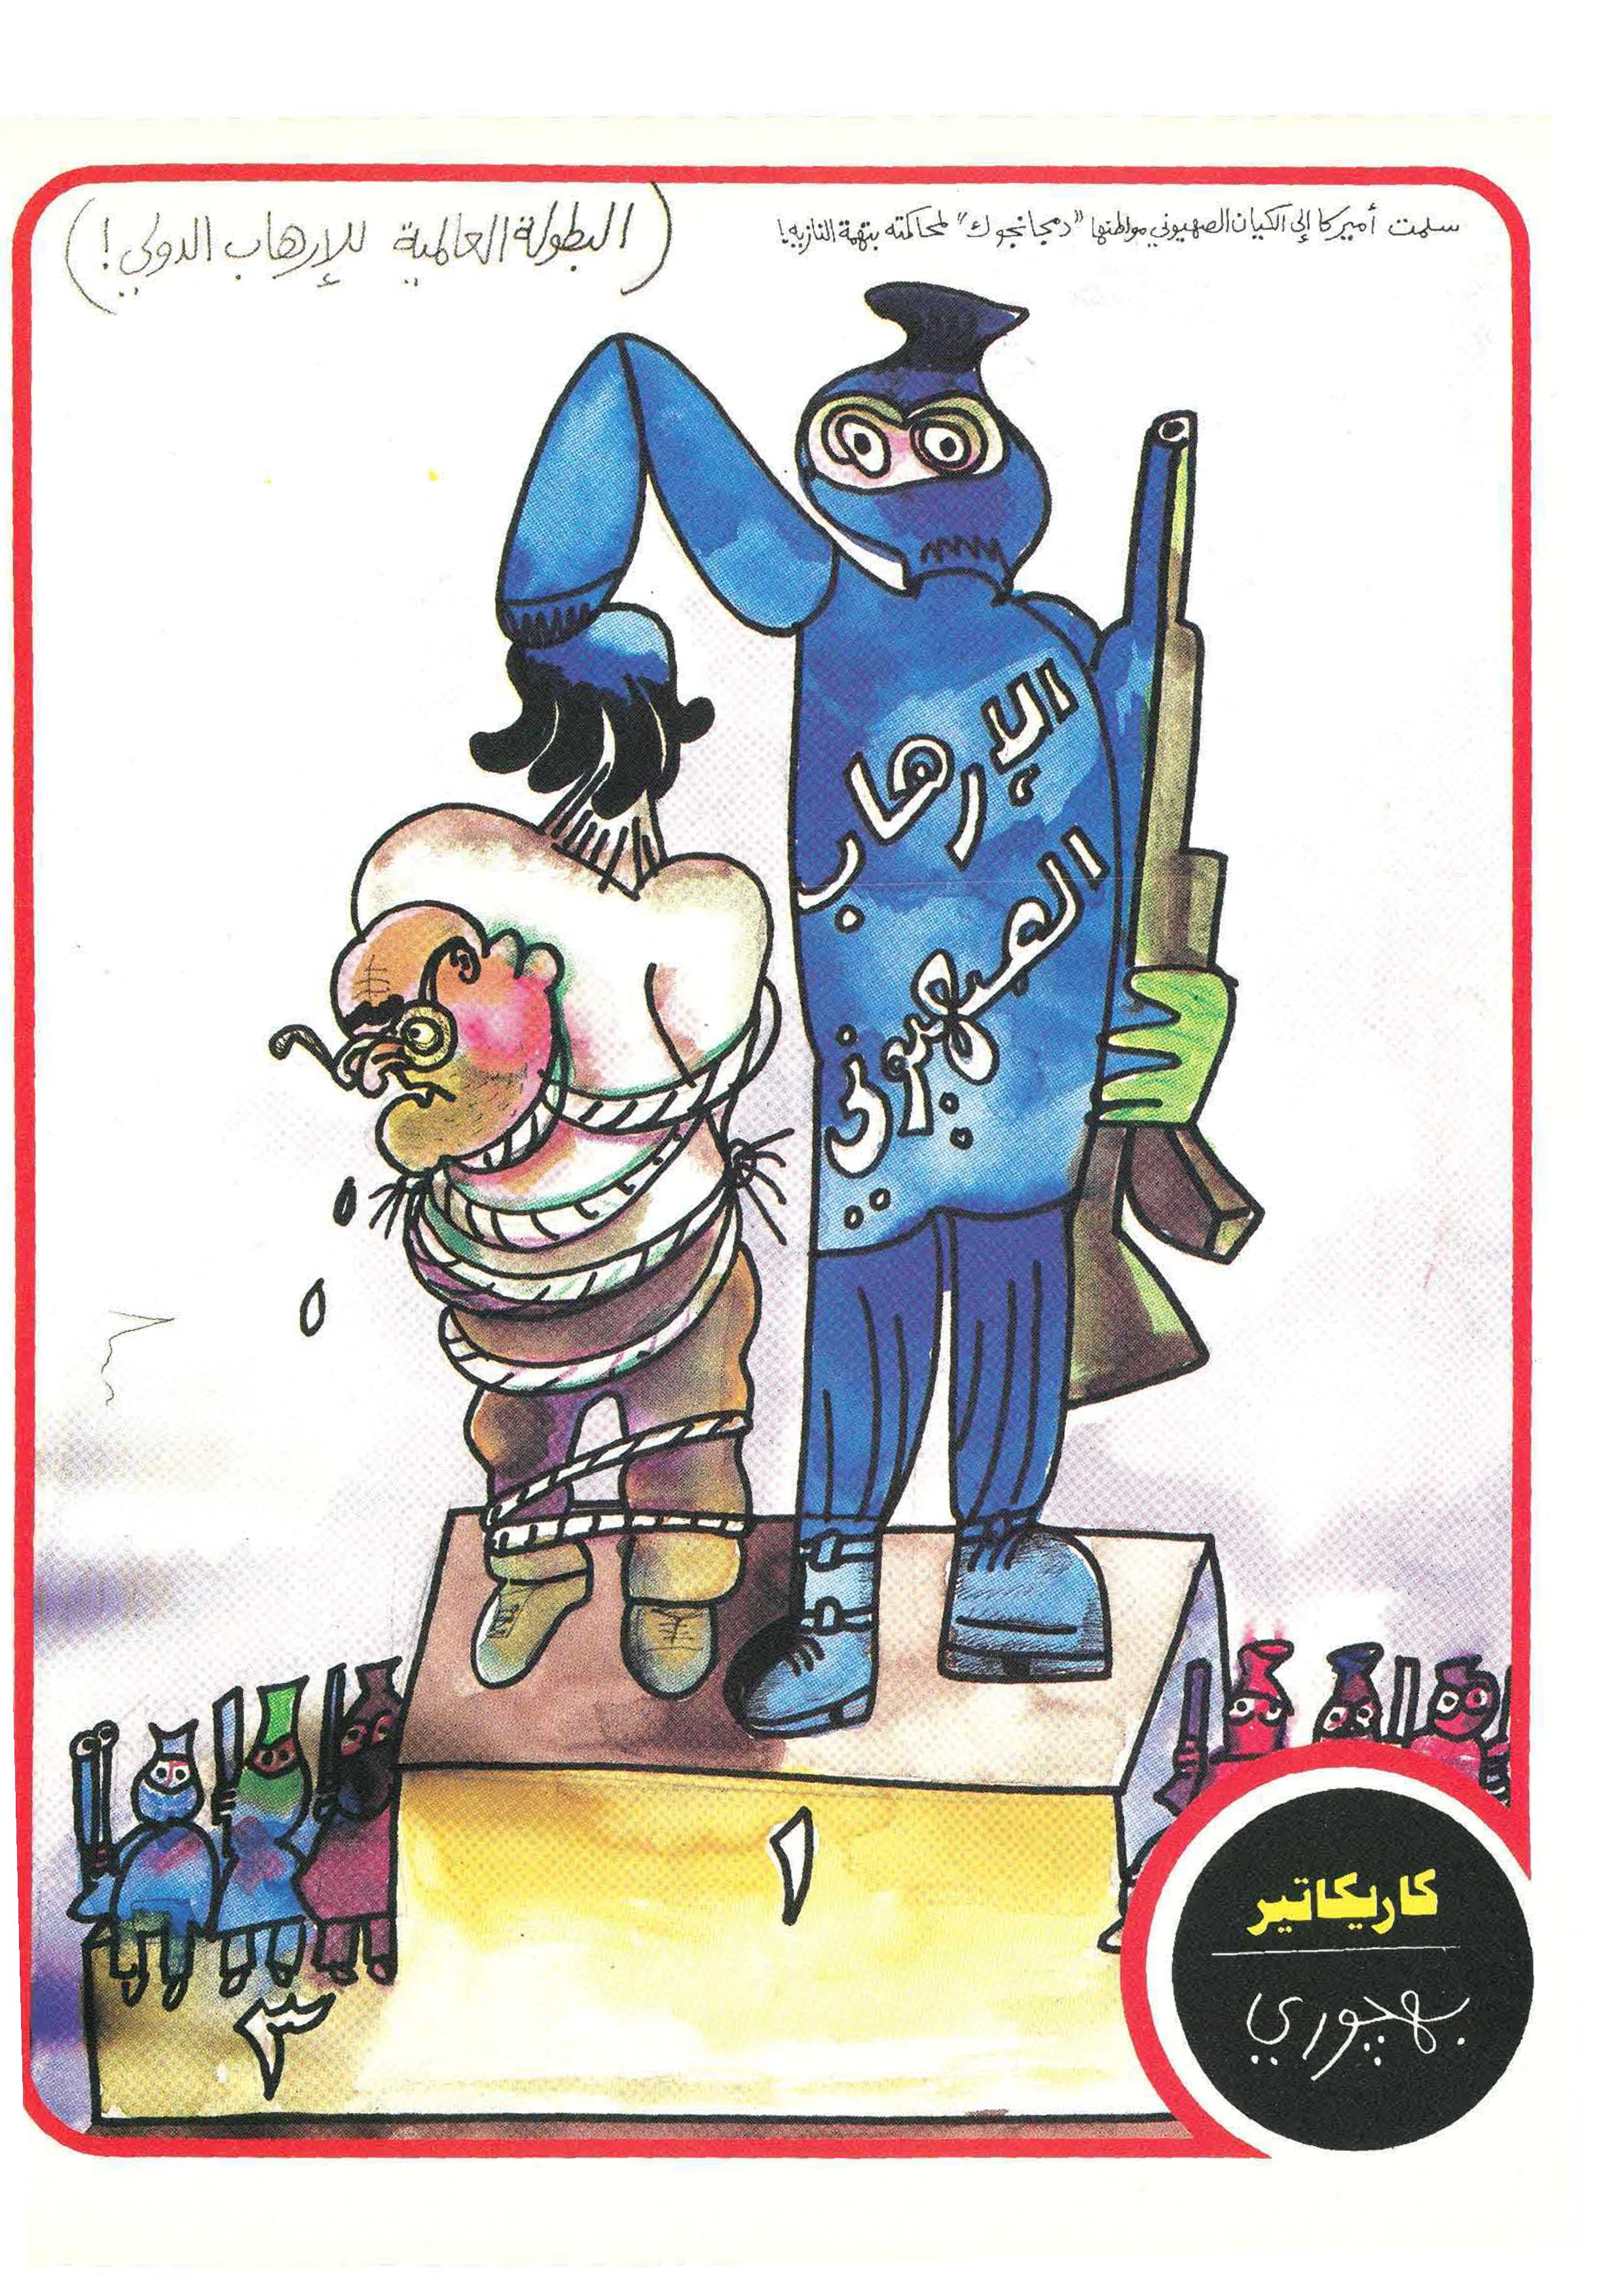 سلمت أميركا إلى الكيان الصهيوني مواطنها "دمجانجوك" لمحاكمته بتهمة النازيه!
(البطولة العالمية للإرهاب الدولي!)
الإرهاب
الصهيوني
١
٣
كاريكاتير
بهجوري